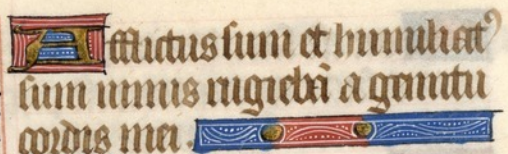 Afflictus sum et humiliatꝰ
sum nimis rugiebā a gemitu
cordis mei.